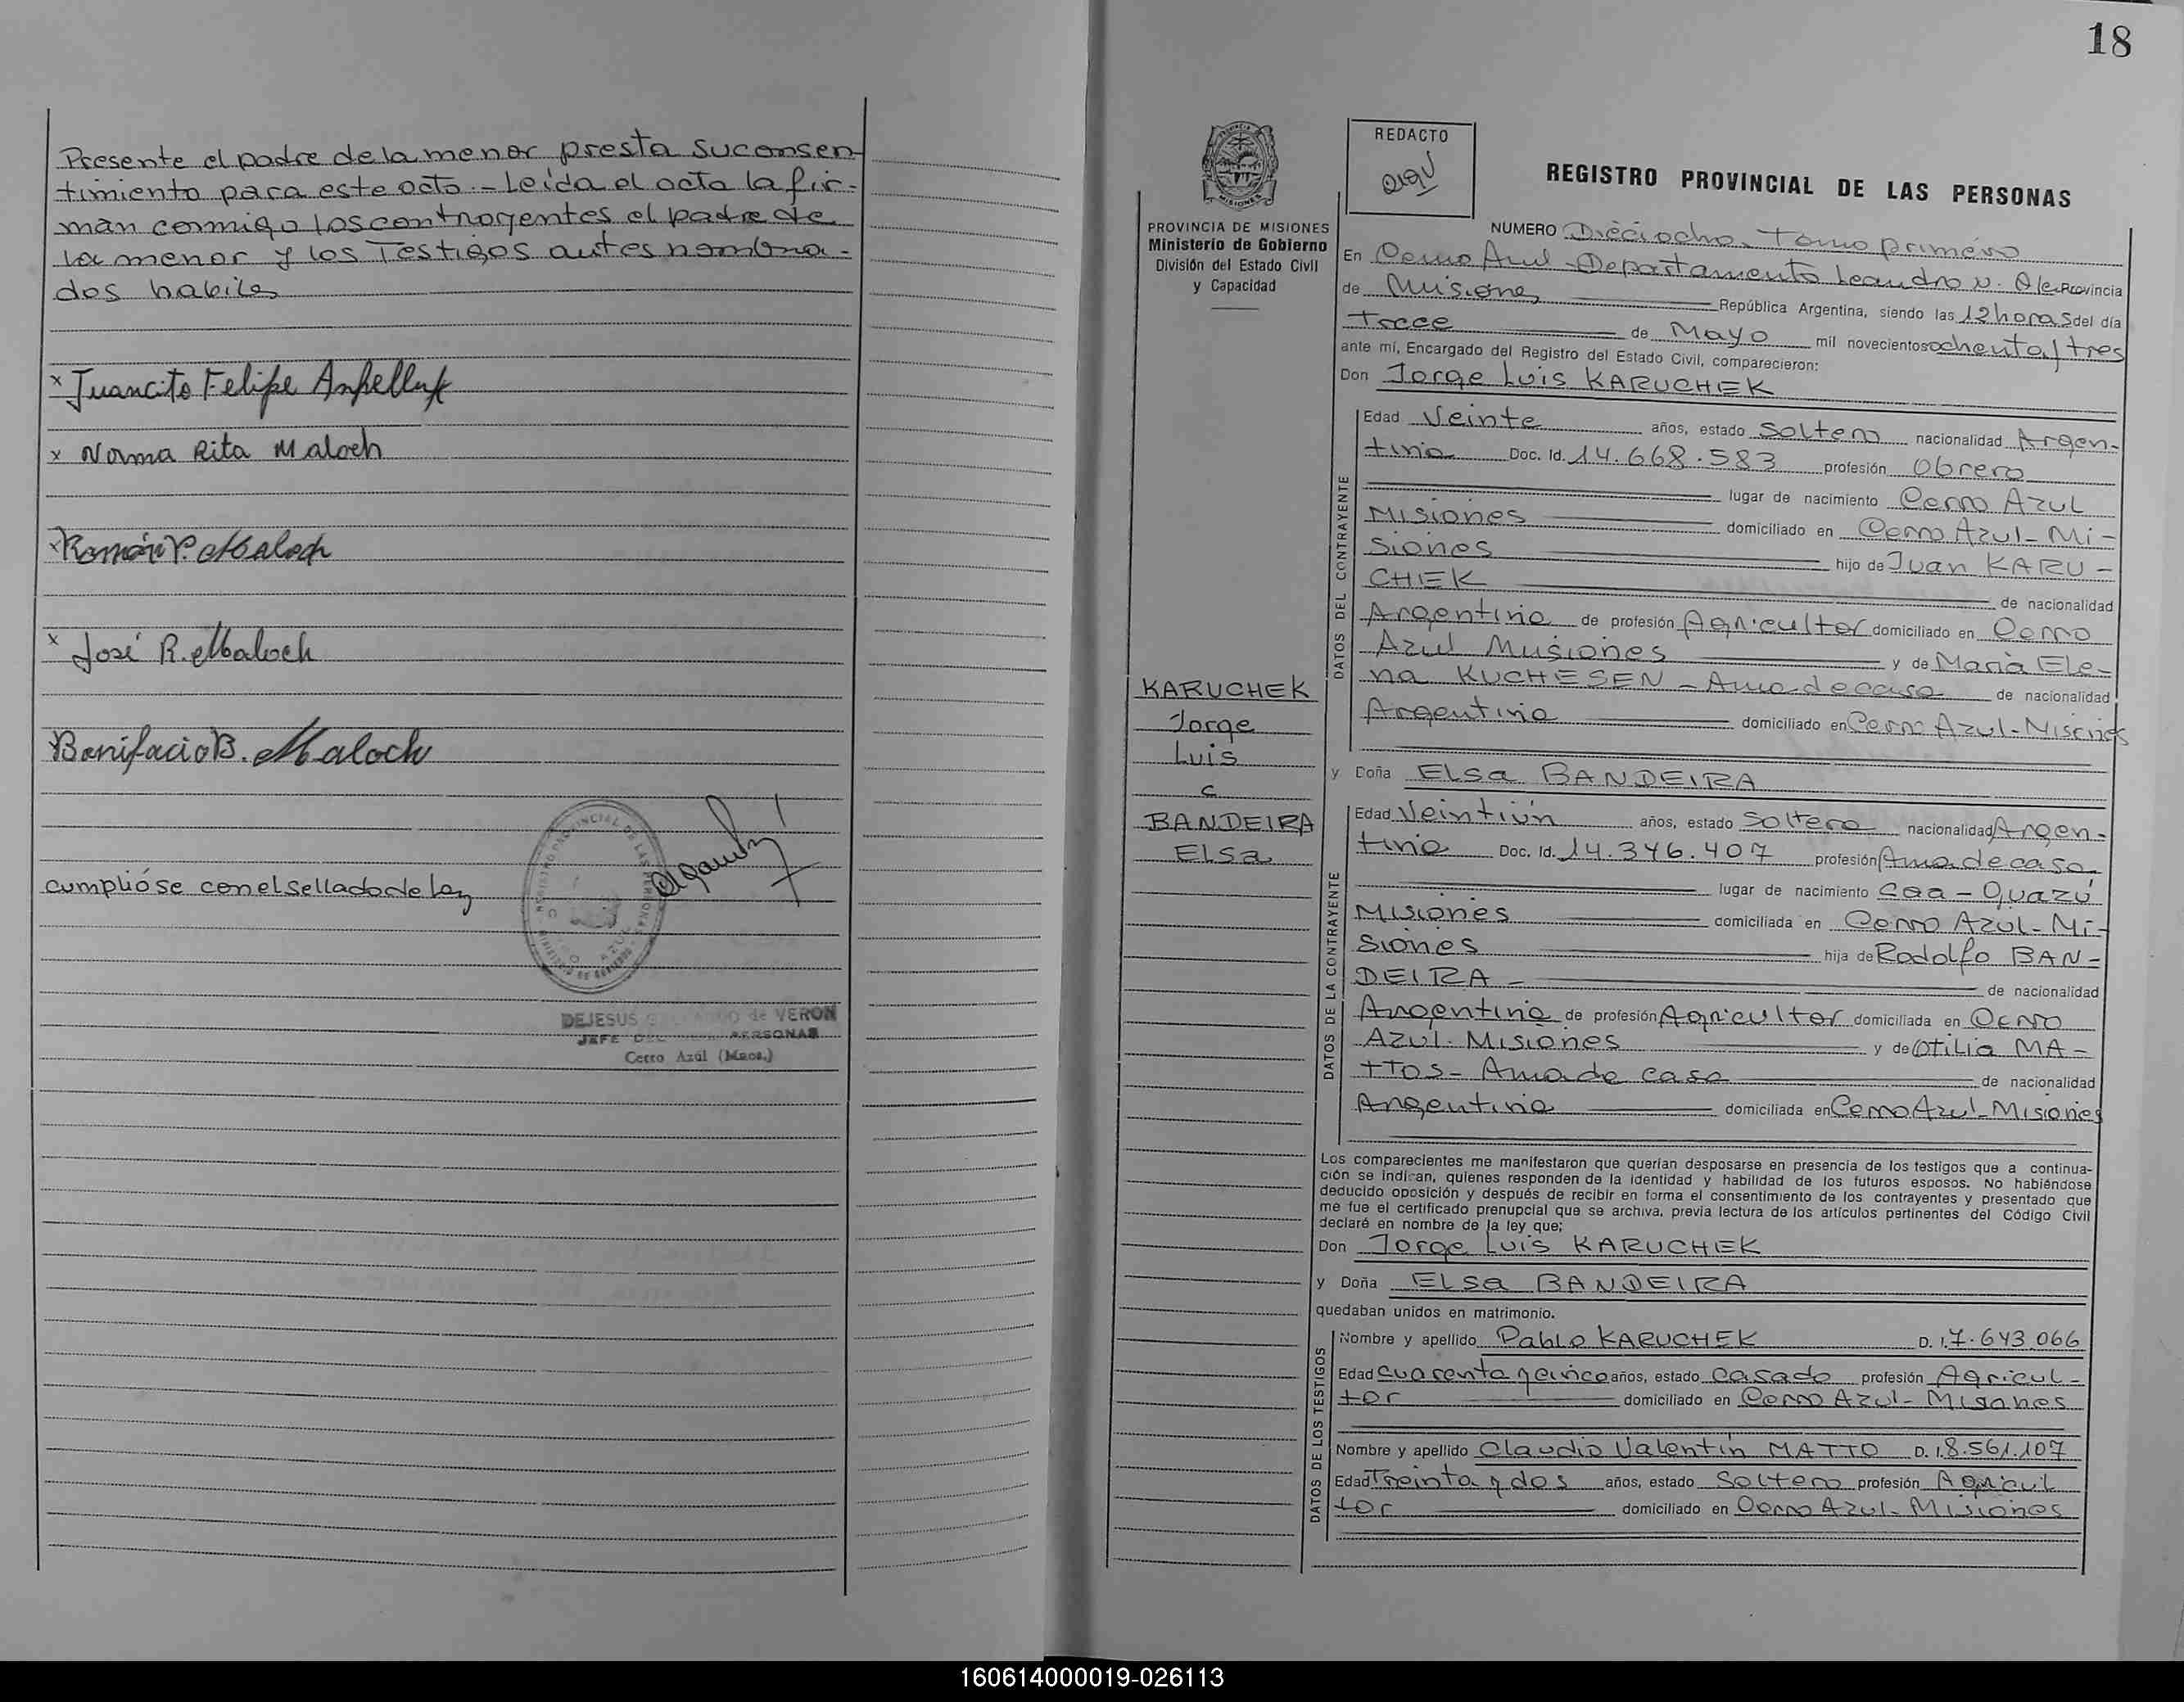 Presente el padre de la menor presta su consen-
timiento para este acto.- Leída el acta la fir-
man conmigo los contrayentes el padre de
la menor y los Testigos antes nombra-
dos habiles
x Juancito Felipe
x Norma Rita Maloch
x Ramón P. Maloch
x José R. Maloch
Bonifacio B. Maloch
cumplióse con el sellado de ley
DEJESUS de VERON
JEFE DEL PERSONAS
Cerro Azúl (Mnes.)
18
PROVINCIA DE MISIONES
Ministerio de Gobierno
División del Estado Civil
y Capacidad
REDACTO
REGISTRO PROVINCIAL DE LAS PERSONAS
NUMERO Dieciocho. Tomo primero
En Cerro Azul - Departamento Leandro N. Alem Provincia
de Misiones República Argentina, siendo las 12 horas del día
Trece de Mayo mil novecientos ochenta y tres
ante mí, Encargado del Registro del Estado Civil, comparecieron:
Don Jorge Luis KARUCHEK
DATOS DEL CONTRAYENTE
Edad Veinte años, estado Soltero nacionalidad Argen-
tina Doc. Id. 14.668.583 profesión Obrero
lugar de nacimiento Cerro Azul
Misiones domiciliado en Cerro Azul - Mi-
siones hijo de Juan KARU-
CHEK de nacionalidad
Argentina de profesión Agricultor domiciliado en Cerro
Azul Misiones y de María Ele-
na KUCHESEN - Ama de casa de nacionalidad
Argentina domiciliado en Cerro Azul - Misiones
KARUCHEK
Jorge
Luis
c
BANDEIRA
Elsa
y Doña Elsa BANDEIRA
DATOS DE LA CONTRAYENTE
Edad Veintiún años, estado Soltera nacionalidad Argen-
tina Doc. Id. 14.346.407 profesión Ama de casa
lugar de nacimiento Caa - Guazú
Misiones domiciliada en Cerro Azul - Mi-
siones hija de Rodolfo BAN-
DEIRA - de nacionalidad
Argentina de profesión Agricultor domiciliada en Cerro
Azul - Misiones y de Otilia MA-
TTOS - Ama de casa de nacionalidad
Argentina domiciliada en Cerro Azul - Misiones
Los comparecientes me manifestaron que querían desposarse en presencia de los testigos que a continua-
ción se indican, quienes responden de la identidad y habilidad de los futuros esposos. No habiéndose
deducido oposición y después de recibir en forma el consentimiento de los contrayentes y presentado que
me fue el certificado prenupcial que se archiva, previa lectura de los artículos pertinentes del Código Civil
declaré en nombre de la ley que:
Don Jorge Luis KARUCHEK
y Doña Elsa BANDEIRA
quedaban unidos en matrimonio.
DATOS DE LOS TESTIGOS
Nombre y apellido Pablo KARUCHEK D. I. 7.643.066
Edad Cuarenta y cinco años, estado casado profesión Agricul-
tor domiciliado en Cerro Azul - Misiones
Nombre y apellido Claudio Valentín MATTO D. I. 8.561.107
Edad Treinta y dos años, estado Soltero profesión Agricul
tor domiciliado en Cerro Azul - Misiones
160614000019-026113